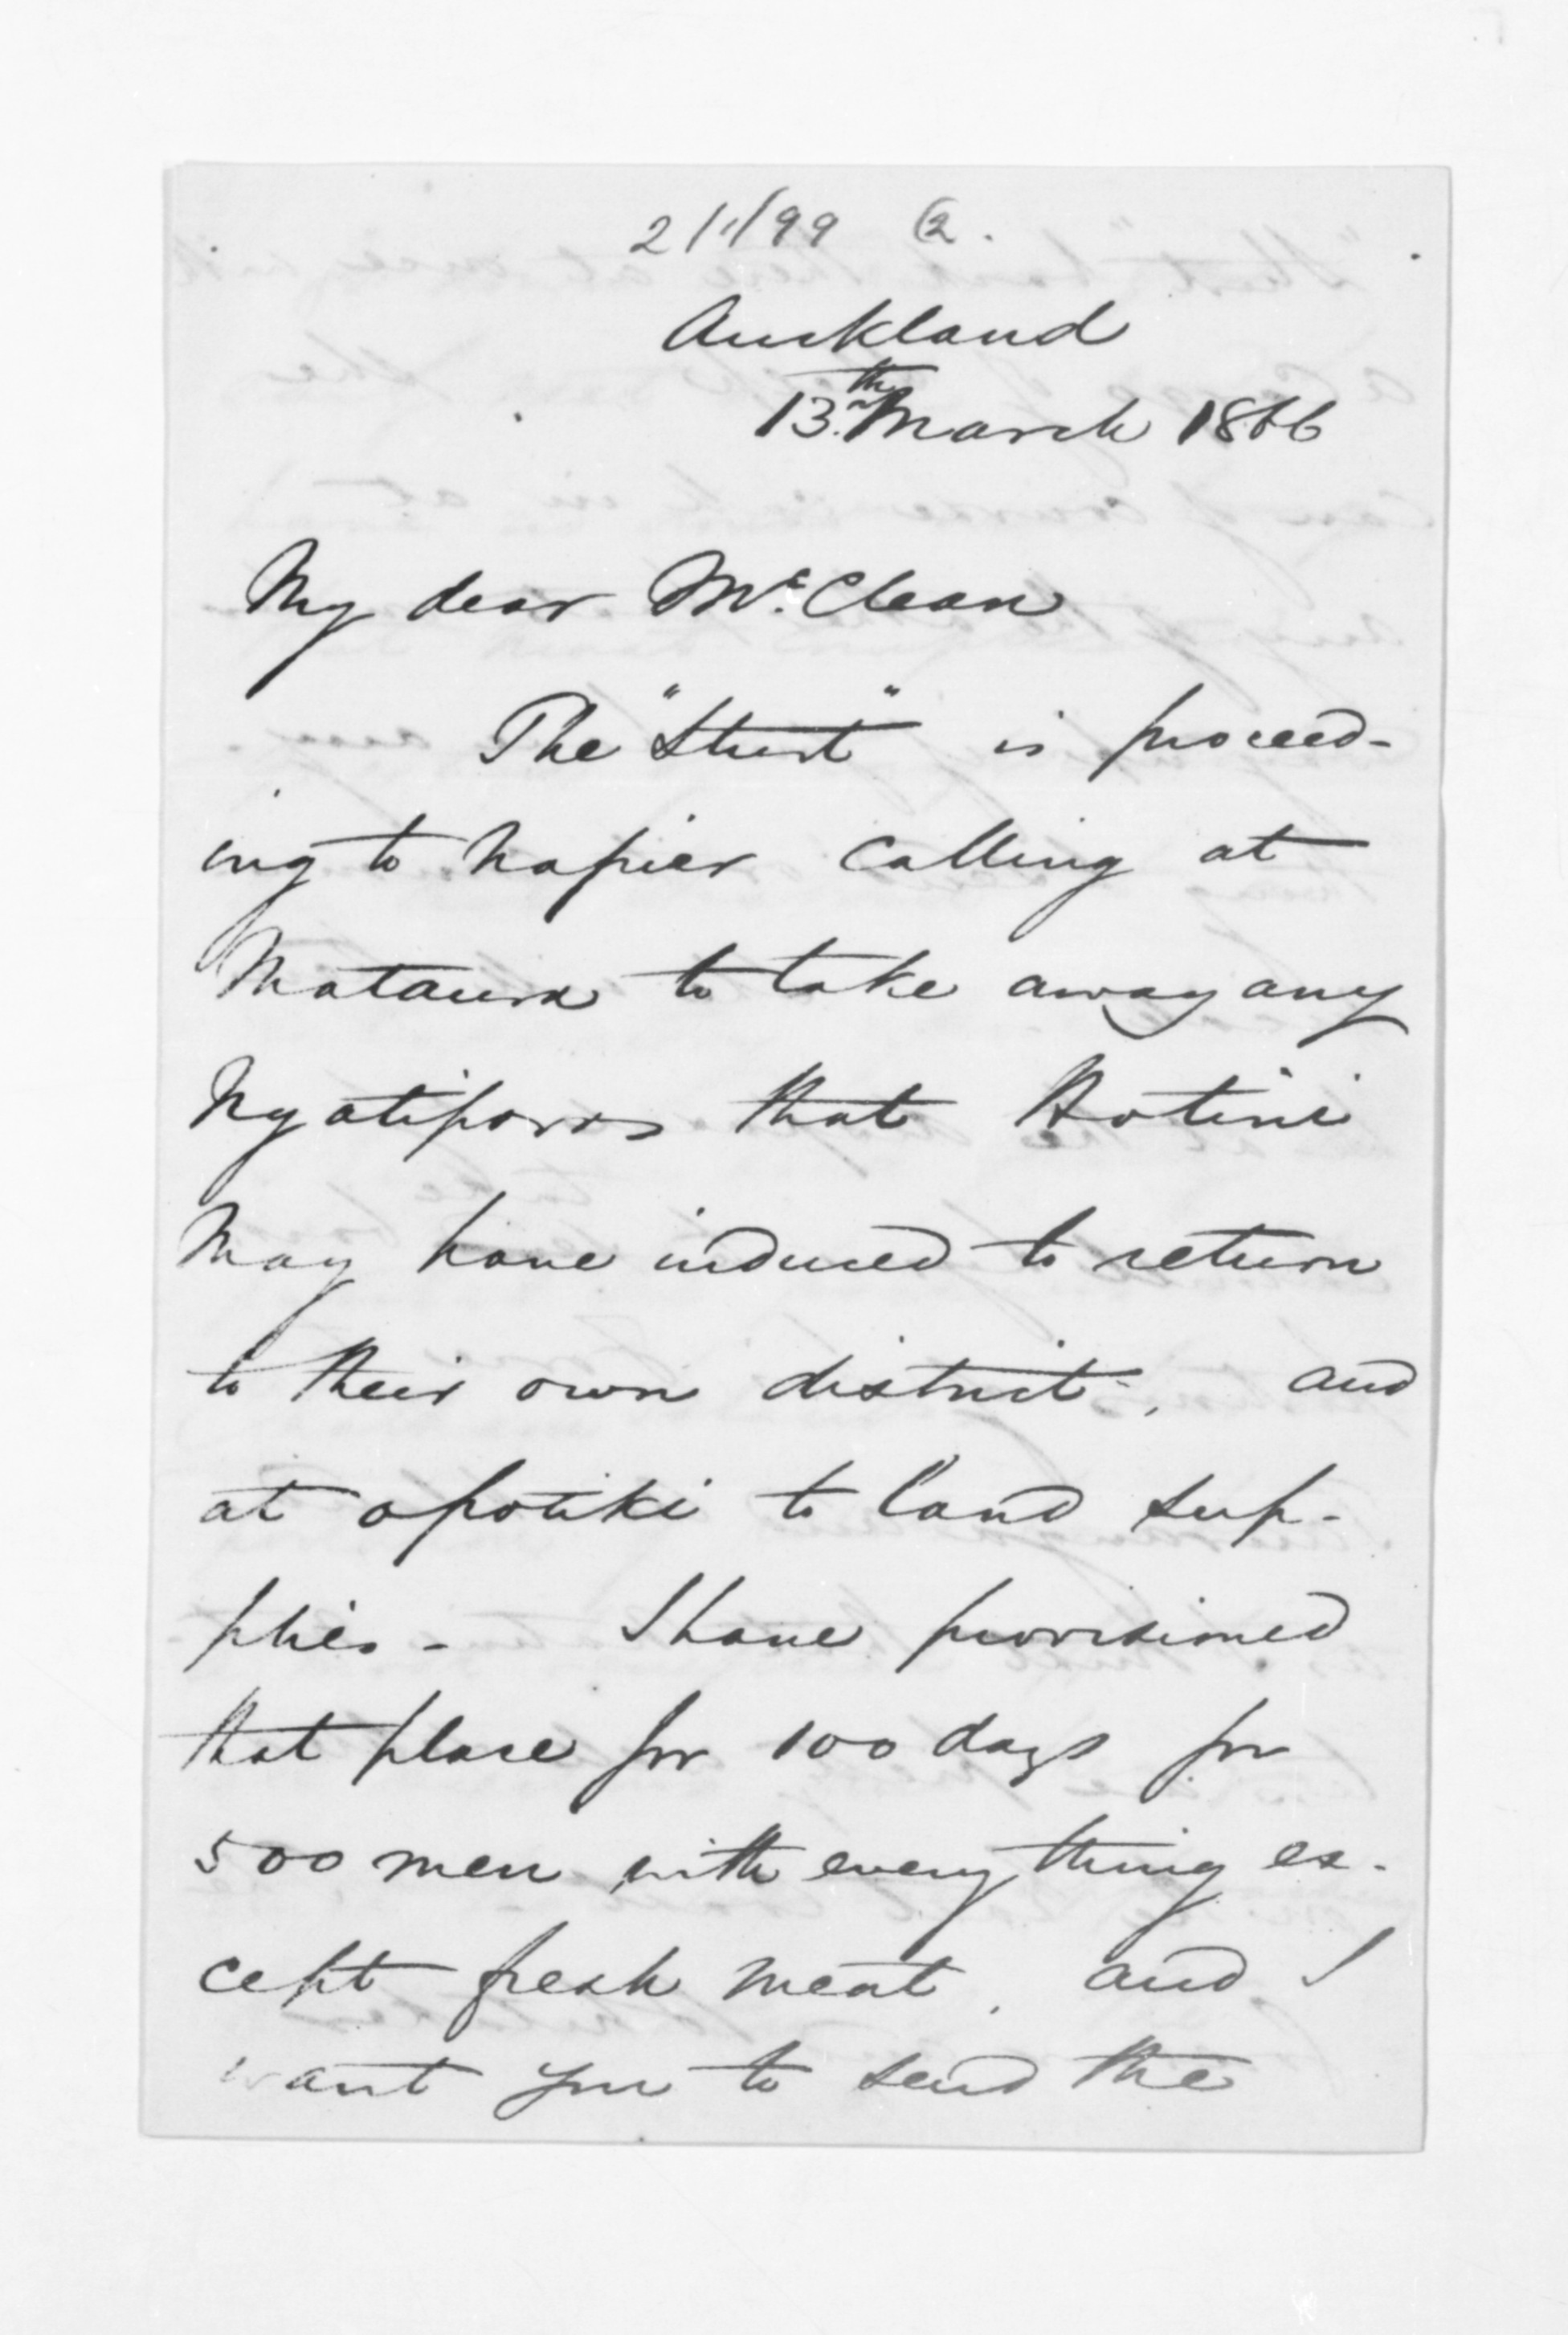 2/1/99 (2.
Auckland
13th March 1866
My dear McClean
The "Sturt" is proceed-
ing to Napier calling at
Mataura to take away any
Ngatiporos that Hotini
May have induced to return
to their own district, and
at opotiki to land sup-
plies - I have provisioned
that place for 100 days for
500 men with every thing ex-
cept fresh meat, and I
want you to send the